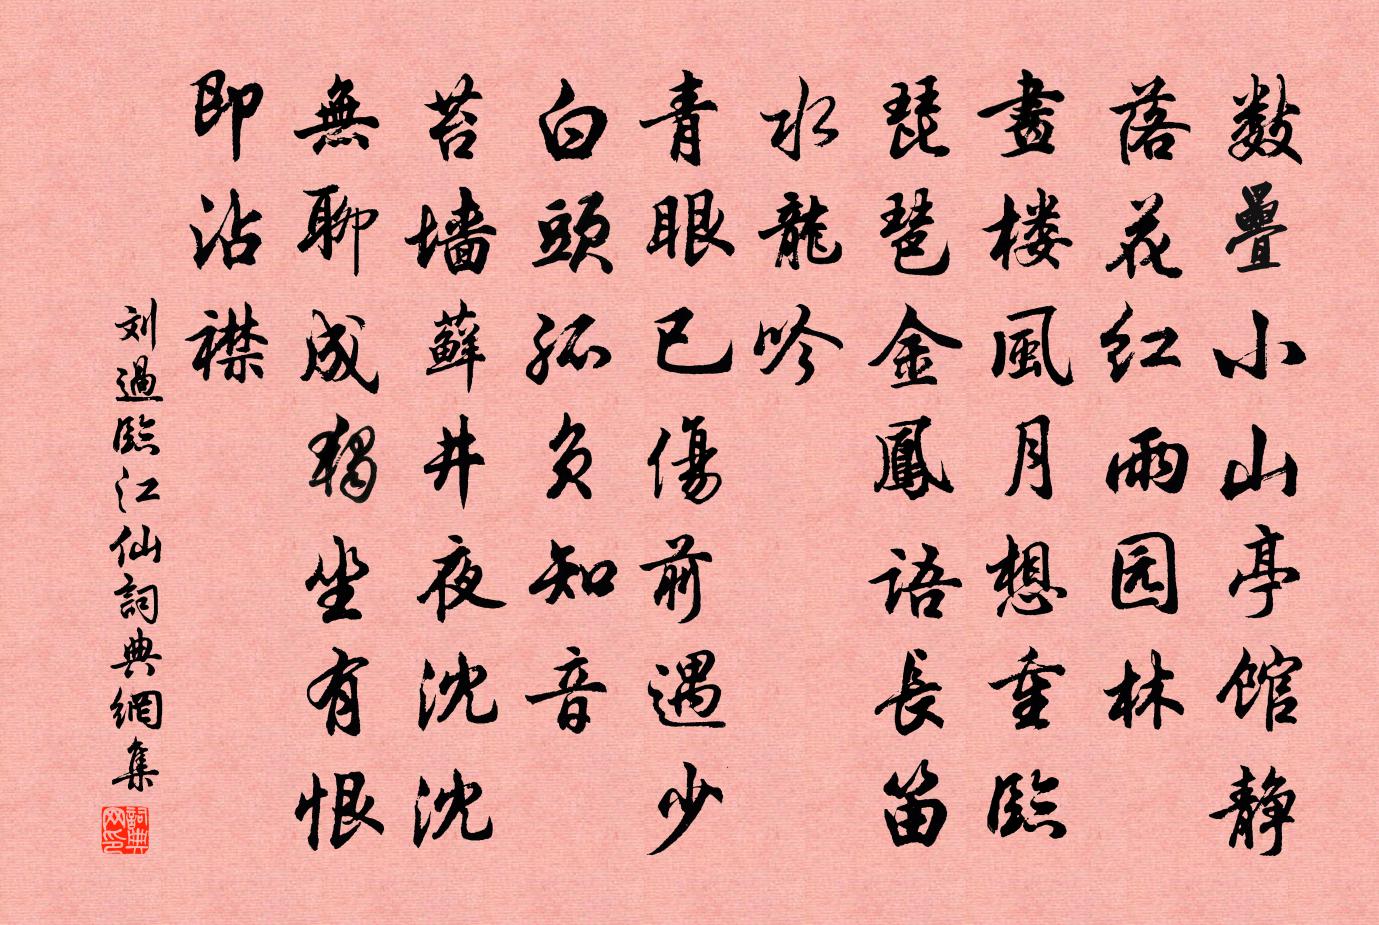 数疊小山亭馆静
落花红雨园林
畫楼風月想重臨
琵琶金鳳語長笛
水龍吟
青眼已傷前遇少
白頭孤负知音
苔墙蘚井夜沈沈
無聊成獨坐有恨
即沾襟
刘過臨江仙詞典網集
詞典网印